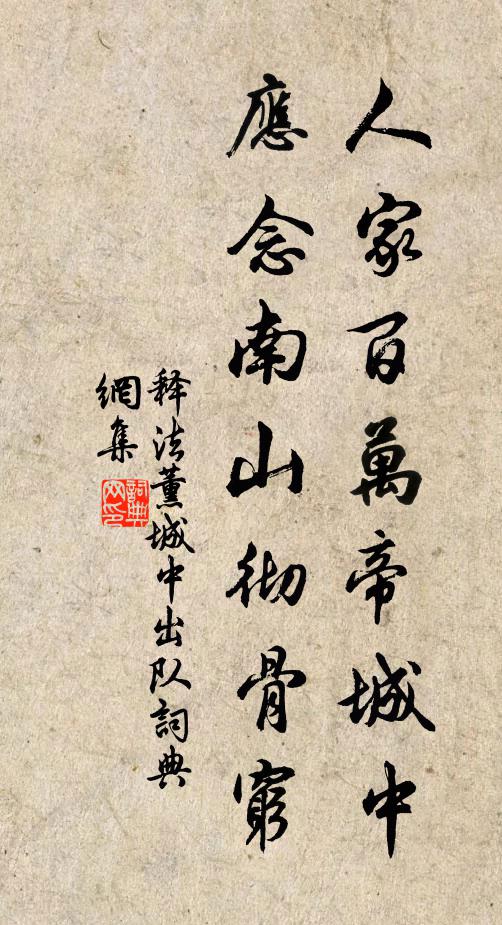 人家百萬帝城中
應念南山彻骨窮
释法薰城中出队詞典
網集
詞典
网印